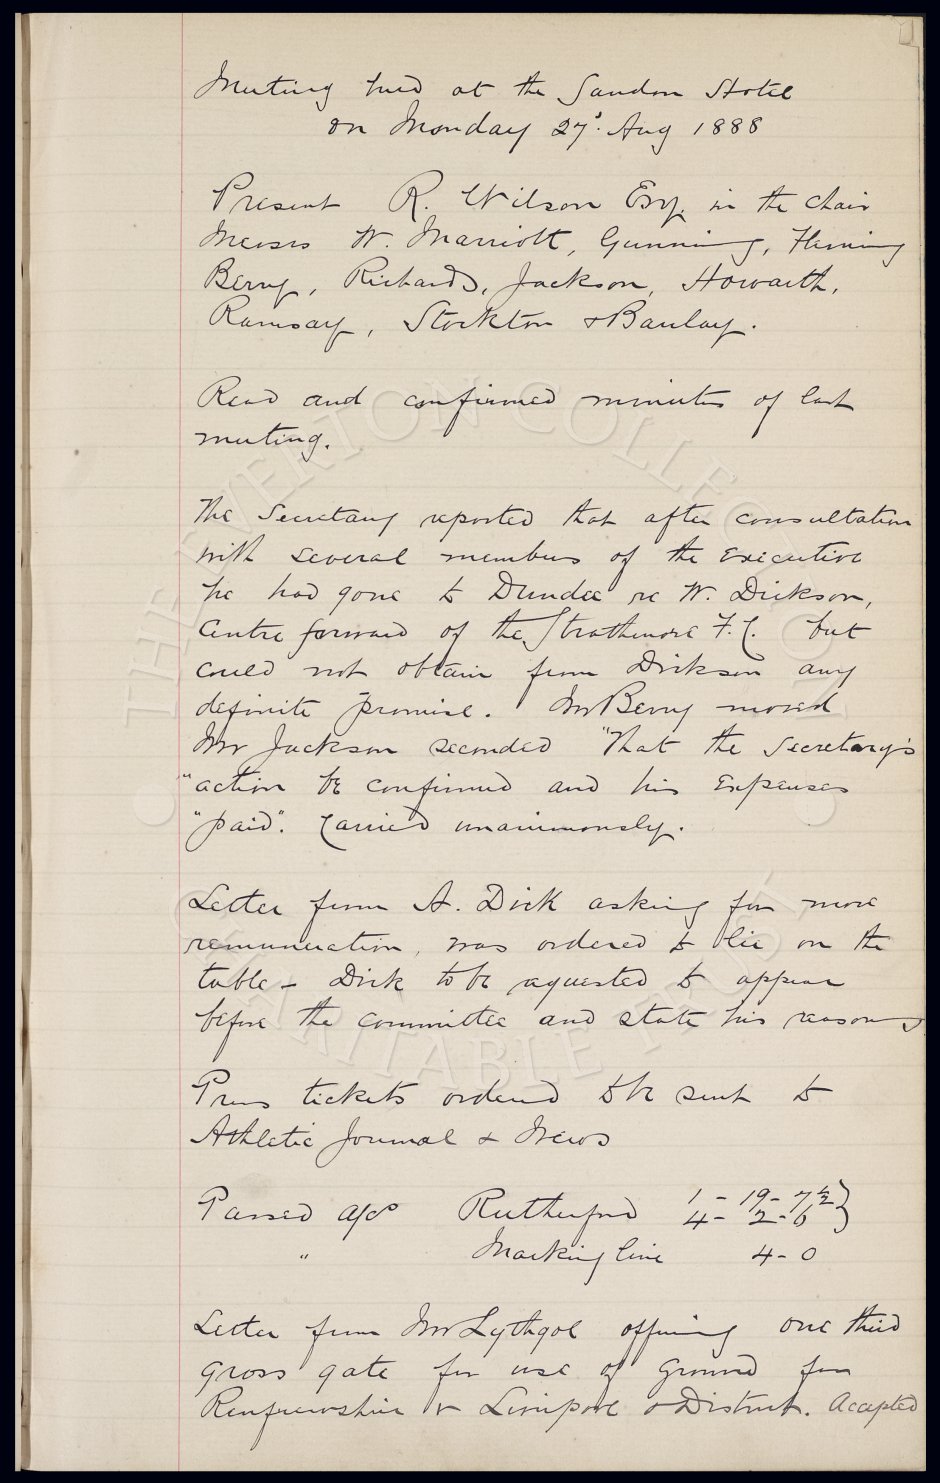 Meeting held at the Sandon Hotel
on Monday 27th. Aug 1888
Present R. Wilson Esq. in the chair
Messrs W. Marriott, Gunning, Fleming
Berry, Richards, Jackson, Howarth,
Ramsay, Stockton & Barclay.
Read and confirmed minutes of last
meeting.
The Secretary reported that after consultation
with several members of the executive
he had gone to Dundee re W. Dickson,
centre forward of the Strathmore F.C. but
could not obtain from Dickson any
definite promise. Mr Berry moved
Mr Jackson seconded "That the Secretary's
"action be confirmed and his expenses
"paid". Carried unanimously.
Letter from A. Dick asking for more
remuneration, was ordered to lie on the
table - Dick to be requested to appear
before the committee and state his reasons
Press tickets ordered to be sent to
Athletic Journal & News
Passed a/cs Rutherford 1 - 19 - 7½ }
4 - 2 - 6
" Marking line 4 - 0
Letter from Mr Lythgoe offering one third
gross gate for use of ground for
Renfrewshire v Liverpool & District. Accepted
THE EVERTON COLLECTION
CHARITABLE TRUST